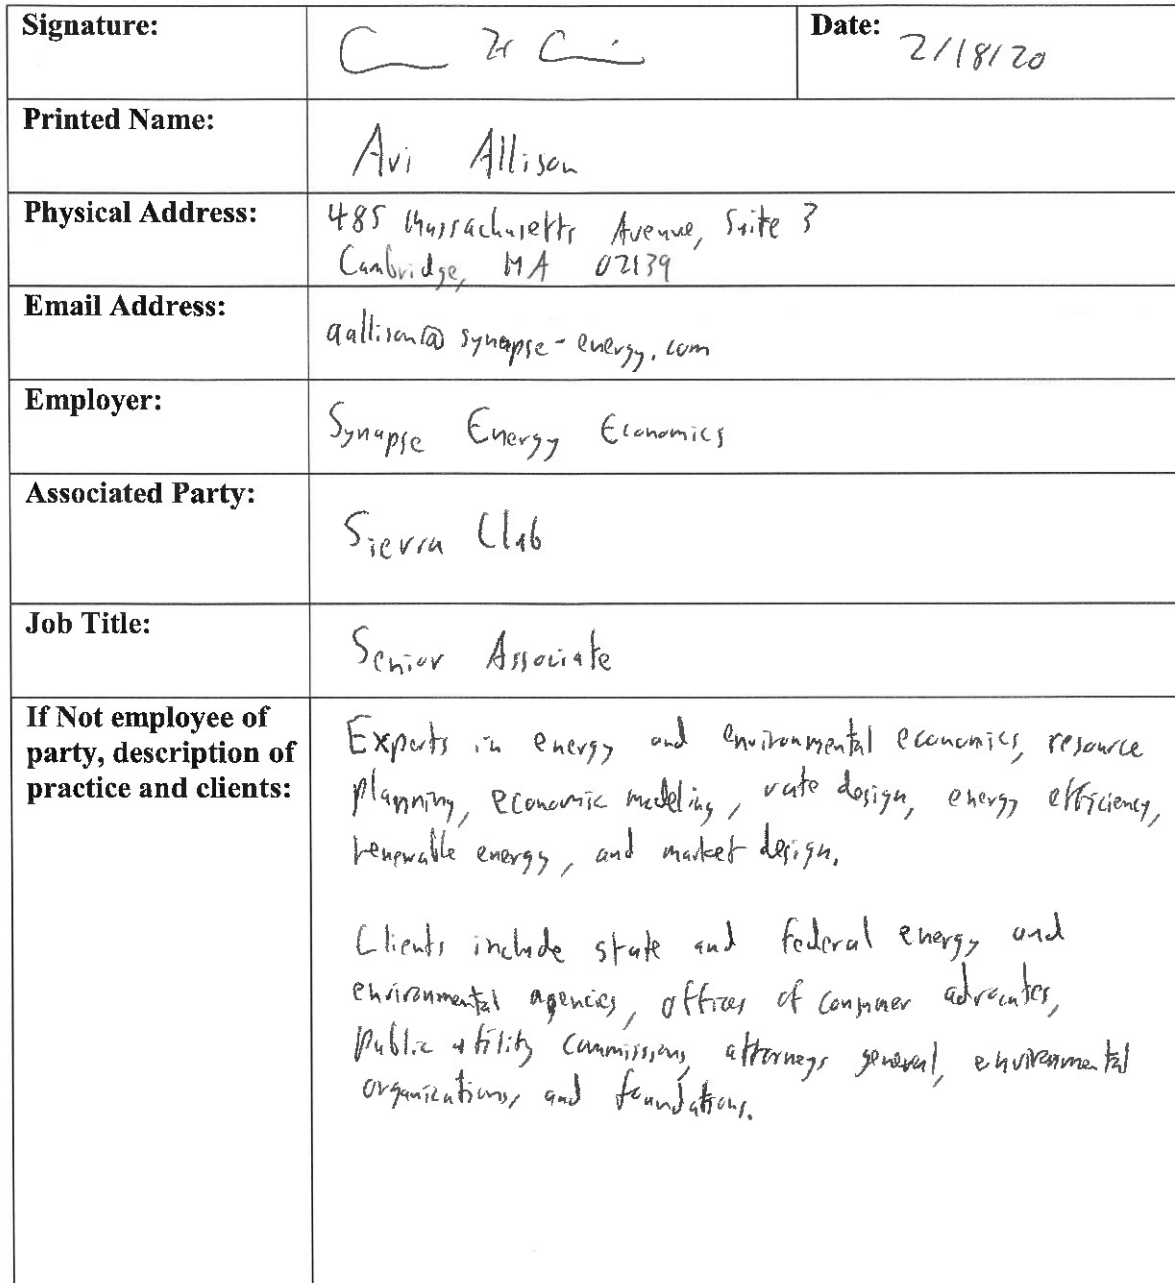 Signature:
Date: 2/18/20
Printed Name:
Avi Allison
Physical Address:
485 Massachusetts Avenue, Suite 3
Cambridge, MA 02139
Email Address:
aallison@synapse-energy.com
Employer:
Synapse Energy Economics
Associated Party:
Sierra Club
Job Title:
Senior Associate
If Not employee of
party, description of
practice and clients:
Experts in energy and environmental economics, resource
planning, economic modeling, rate design, energy efficiency,
renewable energy, and market design.
Clients include state and federal energy and
environmental agencies, offices of consumer advocates,
public utility commissions, attorneys general, environmental
organizations, and foundations.